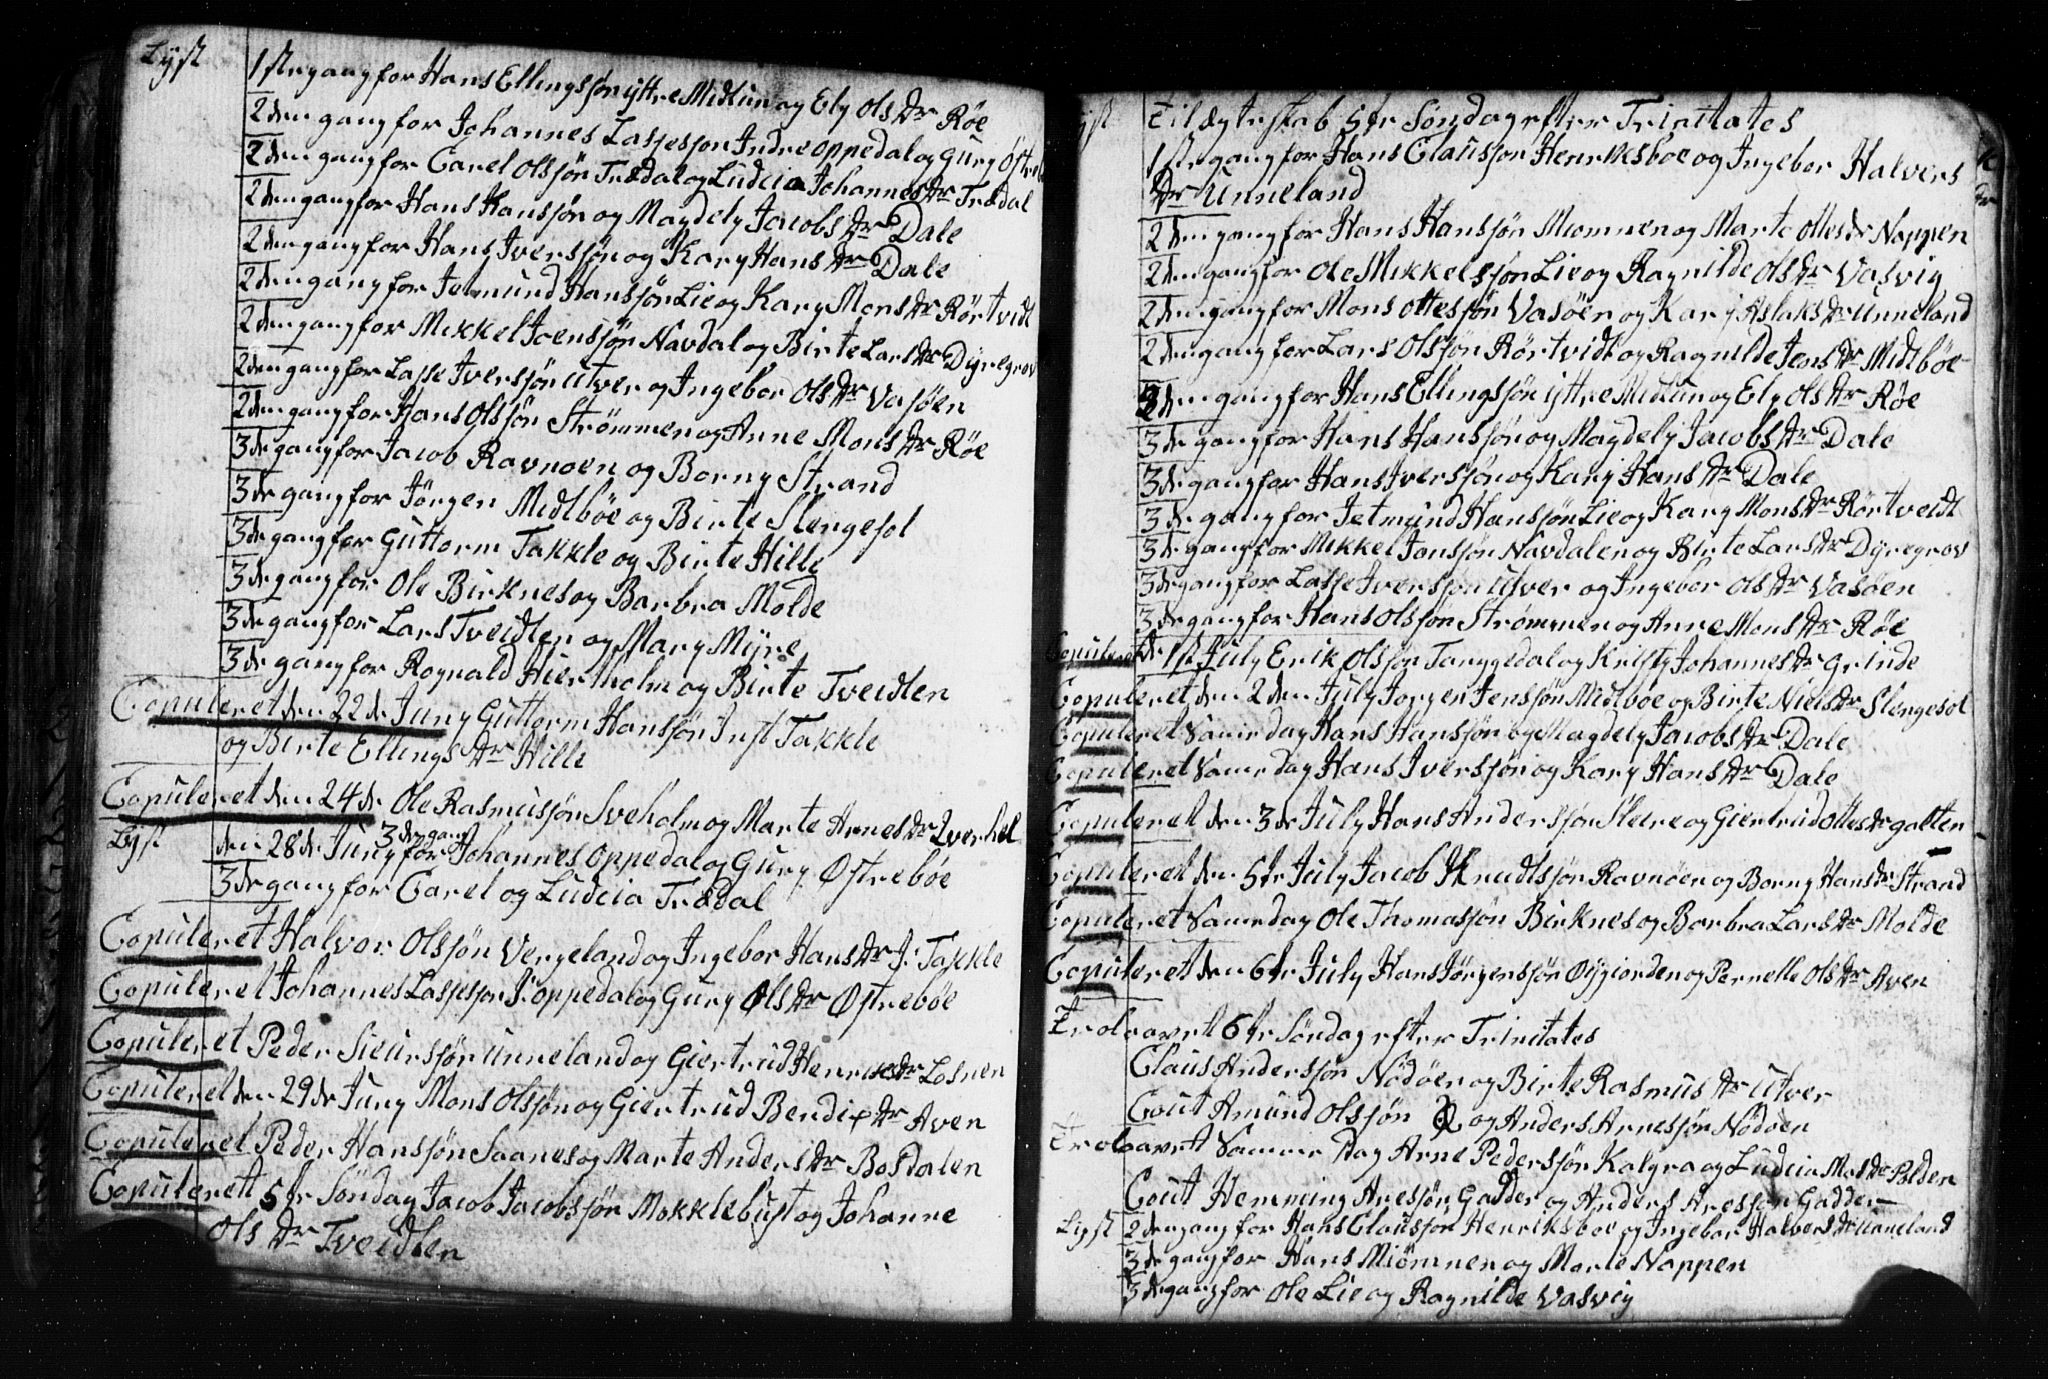 Lyst
1ste gang for Hans Ellingsjøn ÿttre Midtun og Ely Ols dr Røe
2den gang for Johannes Lassesson Indre oppedal og Gury Østreb
2den gang for Carel Olsjøn Trædal og Ludcia Johannes dr Trædal
2den gang for Hans Hansjøn og Magdely Jacobs dr Dale
2den gang for Hans Iversjøn og Kary Hans dr Dale
2den gang for Jetmund Hansjøn Lie og Kary Mons dr Rörtvidt
2den gang for Mikkel Joensjøn Navdal og Birte Lars dr Dÿregrov
2den gang for Lasse Iversjøn Utver og Ingebor Ols dr Vasøen
2den gang for Hans Olsjøn Strømmen og Anne Mons dr Røe
3de gang for Jacob Ravnoen og Borny Strand
3de gang for Jørgen Midtbøe og Birte Slengesol
3de gang for Guttorm Takkle og Birte Hille
3de gang for Ole Birknes og Barbra Molde
3de gang for Lars Tveidten og Mary Mÿre
3de gang for Rognald Hiertholm og Birte Tveidten
Copuleret den 22de Juny Guttorm Hansjøn Inst Takkle
og Birte Ellings dr Hille
Copuleret den 24de Ole Rasmusjøn Sveholm og Marte Arnes dr Qverhel
Lyst den 28de Juny 3de gang for Johannes Oppedal og Gury Østrebøe
3de gang for Carel og Ludcia Trædal
Copuleret Halvor Olsjøn Vergeland og Ingebor Hans dr J: Takkle
Copuleret Johannes Lassesson J: oppedal og Gury Ols dr Østrebøe
Copuleret Peder Sieursjøn unneland og Giertrud Henrics dr Losnen
Copuleret den 29de Juny Mons Olsjøn og Giertrud Bendix dr Aven
Copuleret Peder Hansjøn Saanes og Marte Anders dr Bosdalen
Copulerett 5te Søndag Jacob Jacobsjøn Mokklebust og Johanne
Ols dr Tveidten
Lyst Til Egteskab 5te Søndag efter Trinitates
1ste gang for Hans Claussjon Henriksboe og Ingebor Halvers
dr Unneland
2den gang for Hans Hansjøn Miomnen og Marte Ottes dr Noppen
2den gang for Ole Mikkelsjøn Lie og Ragnilde Ols dr Vasvig
2den gang for Mons Ottesjøn Vasøen og Kary Aslaks dr Unneland
2den gang for Lars Olsjøn Rörtvidt og Ragnilde Jens dr Midtbøe
3de gang for Hans Ellingsjøn ÿttre Midtun og Ely Ols dr Røe
3de gang for Hans Hansjøn og Magdely Jacobs dr Dale
3de gang for Hans Iversjøn og Kary Hans dr Dale
3de gang for Jetmund Hansjøn Lie og Kary Mons dr Rörtveidt
3de gang for Mikkel Jonsjøn Navdalen og Birte Lars dr Dyregrov
3de gang for Lasse Iversjøn Utver og Ingebor Ols dr Vasøen
3de gang for Hans Olsjøn Strømmen og Anne Mons dr Røe
Copuleret de 1ste July Erik Olsjøn Tanggedal og Kristy Johannes dr Grinde
Copuleret den 2den July Jørgen Jensjøn Midtboe og Birte Niels dr Slengesol
Copuleret Samme dag Hans Hansjøn og Magdely Jacobs dr Dale
Copuleret Samme dag Hans Iversjøn og Kary Hans dr Dale
Copuleret den 3de July Hans Andersjøn Steire og Giertrud Ottes dr galten
Copuleret den 5te July Jacob Knudtsjøn Ravnøen og Borny Hans dr Strand
Copuleret Samme dag Ole Thomasjøn Birknes og Borbra Lars dr Molde
Copuleret den 6te July Hans Jörgensjøn Øygiorden og Pernelle Ols dr Aven
Trolovet 6te Søndag efter Trinitates
Claus Andersjøn Nödöen og Birte Rasmus dr Utver
Cout Amund Olsjøn og Anders Arnesjøn Nödöen
Trolovet Samme Dag Arne Pedersjøn Kalgra og Ludcia Mos dr Polden
Cout Hemming Aresjøn Gadder og Anders Aresjøn Gadder
Lyst 2den gang for Hans Clausjön Henriksboe og Ingebor Halvers dr Unneland
3de gang for Hans Miömnen og Marte Noppen
3de gang for Ole Lie og Ragnilde Vasvig